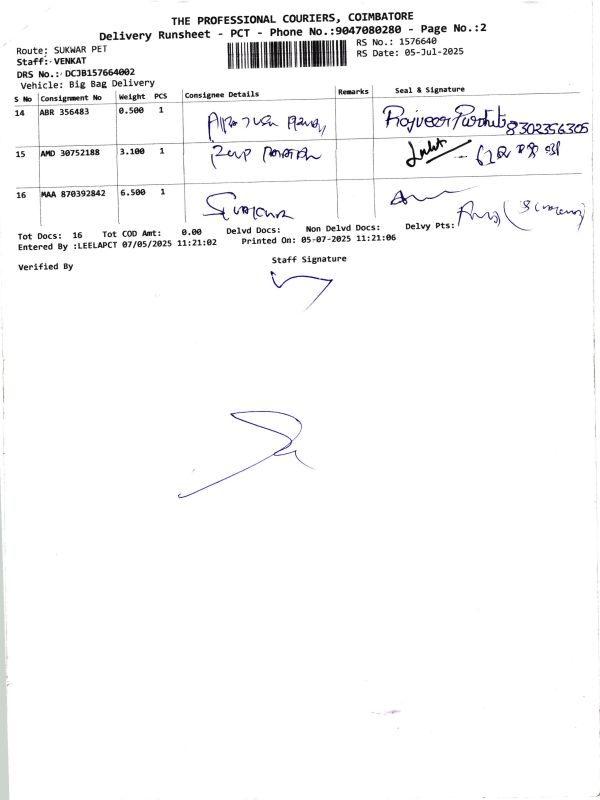 THE PROFESSIONAL COURIERS, COIMBATORE
Delivery Runsheet - PCT - Phone No.:9047080280 - Page No.:2
Route: SUKWAR PET
RS No.: 1576640
Staff: VENKAT
RS Date: 05-Jul-2025
DRS No.: DCJB157664002
Vehicle: Big Bag Delivery
S No Consignment No Weight PCS Consignee Details Remarks Seal & Signature
14 ABR 356483 0.500 1 8302356305
15 AMD 30752188 3.100 1
16 MAA 870392842 6.500 1
Tot Docs: 16 Tot COD Amt: 0.00 Delvd Docs: Non Delvd Docs: Delvy Pts:
Entered By :LEELAPCT 07/05/2025 11:21:02 Printed On: 05-07-2025 11:21:06
Verified By
Staff Signature